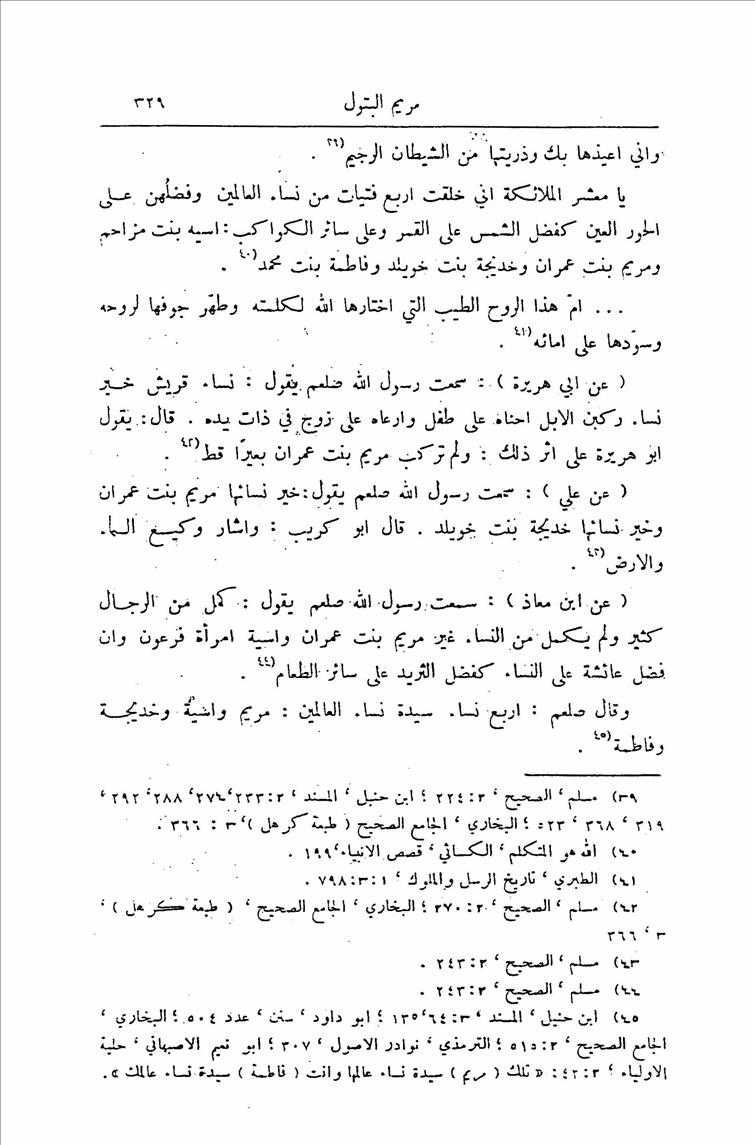 مريم البتول ٣٢٩
واني اعيذها بك وذريتها من الشيطان الرجيم(٣٩ .
يا معشر الملائكة اني خلقت اربع فتيات من نساء العالمين وفضلهن على
الحور العين كفضل الشمس على القمر وعلى سائر الكواكب : اسيه بنت مزاحم
ومريم بنت عمران وخديجة بنت خويلد وفاطمة بنت محمد(٤٠ .
... امّ هذا الروح الطيب التي اختارها الله لكلمته وطهّر جوفها لروحه
وسوّدها على امائه(٤١ .
( عن ابي هريرة ) : سمعت رسول الله صلعم يقول : نساء قريش خير
نساء ركبن الابل احناه على طفل وارعاه على زوج في ذات يده . قال : يقول
ابو هريرة على اثر ذلك : ولم تركب مريم بنت عمران بعيرًا قط(٤٢ .
( عن علي ) : سمعت رسول الله صلعم يقول : خير نسائها مريم بنت عمران
وخير نسائها خديجة بنت خويلد . قال ابو كريب : واشار وكيع الى السماء
والارض(٤٣ .
( عن ابن معاذ ) : سمعت رسول الله صلعم يقول : كمل من الرجال
كثير ولم يكمل من النساء غير مريم بنت عمران واسية امرأة فرعون وان
فضل عائشة على النساء كفضل الثريد على سائر الطعام(٤٤ .
وقال صلعم : اربع نساء سيدة نساء العالمين : مريم واسية وخديجة
وفاطمة(٤٥ .
٣٩) مسلم ، الصحيح ، ٢ : ٢٢٤ ؛ ابن حنبل ، المسند ، ٢ : ٢٣٣ ، ٢٧٤ ، ٢٨٨ ، ٢٩٢ ،
٣١٩ ، ٣٦٨ ، ٥٢٣ ؛ البخاري ، الجامع الصحيح ( طبعة كرهل ) ، ٣ : ٣٦٦ .
٤٠) الله هو المتكلم ، الكسائي ، قصص الانبياء ، ١٩٩ .
٤١) الطبري ، تاريخ الرسل والملوك ، ١ : ٣ : ٧٩٨ .
٤٢) مسلم ، الصحيح ، ٢ : ٢٧٠ ؛ البخاري ، الجامع الصحيح ، ( طبعة كرهل ) ،
٣ ، ٣٦٦
٤٣) مسلم ، الصحيح ، ٢ : ٢٤٣ .
٤٤) مسلم ، الصحيح ، ٢ : ٢٤٣ .
٤٥) ابن حنبل ، المسند ، ٣ : ٦٤ ، ١٣٥ ؛ ابو داود ، سنن ، عدد ٥٠٤ ؛ البخاري ،
الجامع الصحيح ، ٢ : ٥١٥ ؛ الترمذي ، نوادر الاصول ، ٣٠٧ ؛ ابو نعيم الاصبهاني ، حلية
الاولياء ، ٢ : ٤٢ : « تلك ( مريم ) سيدة نساء عالمها وانت ( فاطمة ) سيدة نساء عالمك » .